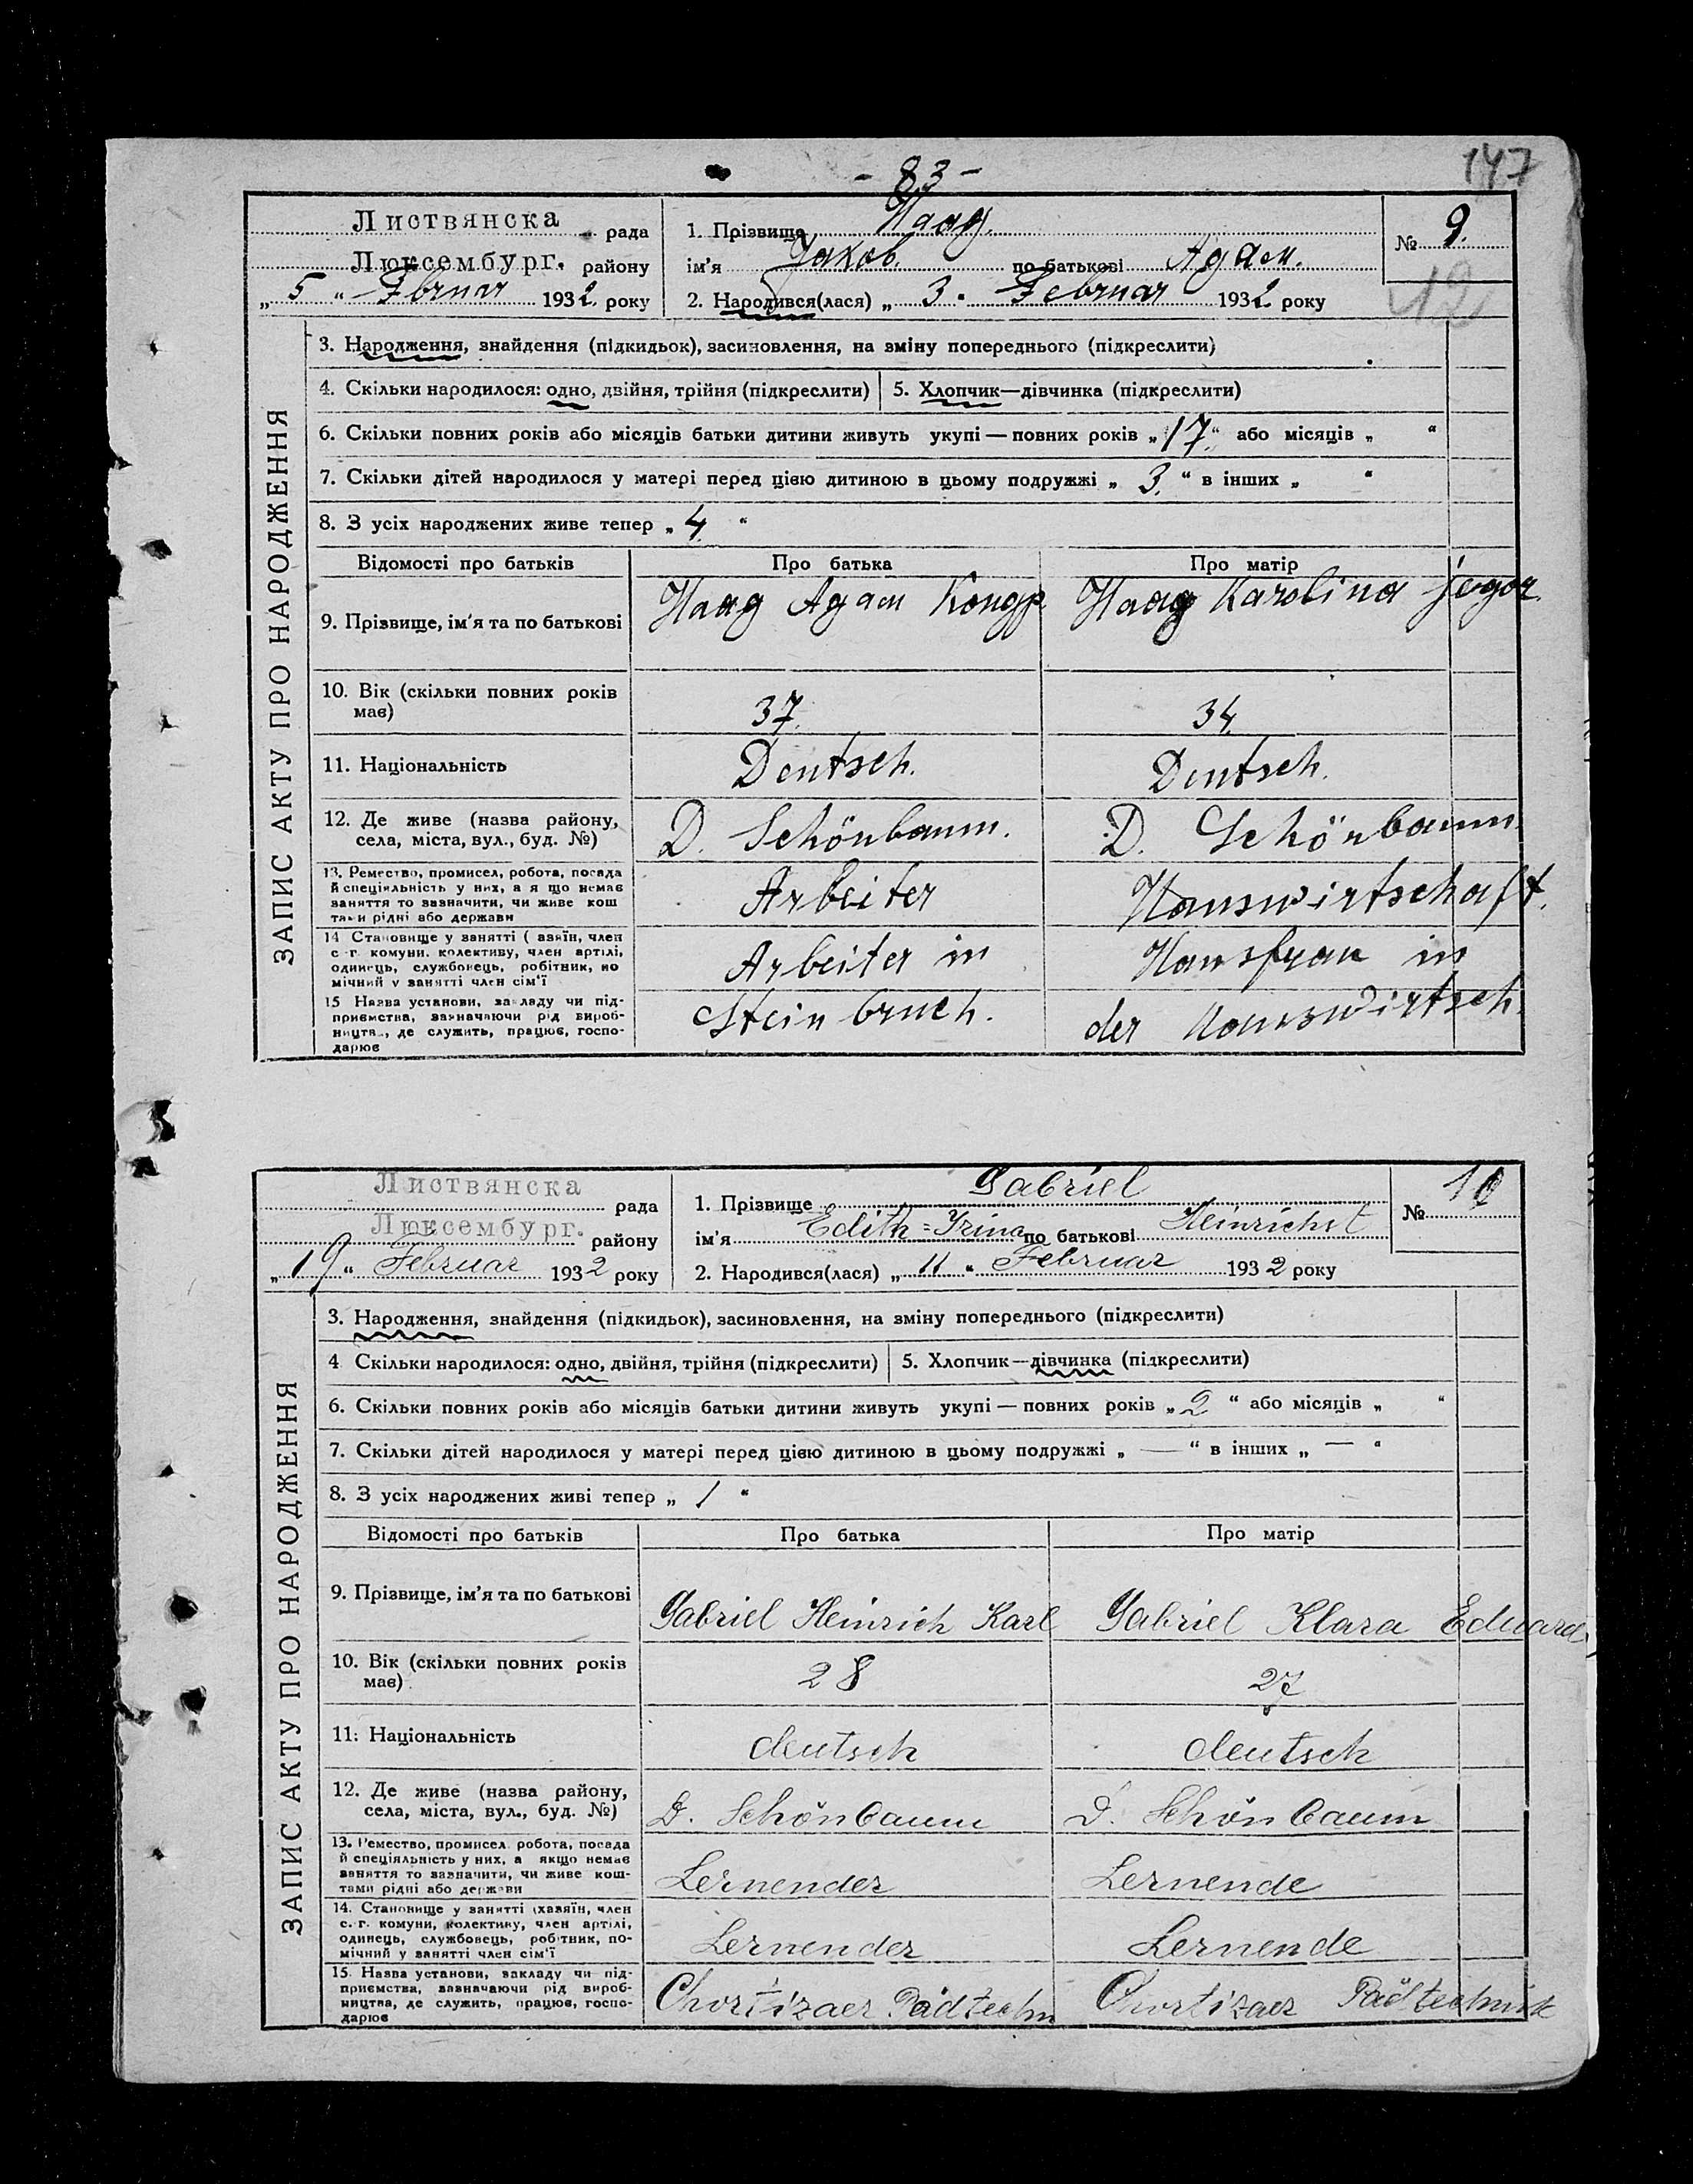 - 83 -
147
Листвянска рада
Люксембург. району
„ 5 “ Februar 1932 року
1. Прізвище Haag.
ім'я Jakob. по батькові Адам.
2. Народився(лася) „ 3. “ Februar 1932 року
№ 9.
12
ЗАПИС АКТУ ПРО НАРОДЖЕННЯ
3. Народження, знайдення (підкидьок), засиновлення, на зміну попереднього (підкреслити)
4. Скільки народилося: одно, двійня, трійня (підкреслити)
5. Хлопчик—дівчинка (підкреслити)
6. Скільки повних років або місяців батьки дитини живуть укупі — повних років „ 17. “ або місяців „ “
7. Скільки дітей народилося у матері перед цією дитиною в цьому подружжі „ 3. “ в інших „ “
8. З усіх народжених живе тепер „ 4. “
Відомості про батьків
Про батька
Про матір
9. Прізвище, ім'я та по батькові
Haag Адам Кондр.
Haag Karolina Jegor.
10. Вік (скільки повних років
має)
37.
34.
11. Національність
Deutsch.
Deutsch.
12. Де живе (назва району,
села, міста, вул., буд. №)
D. Schönbaum.
D. Schönbaum.
13. Ремество, промисел, робота, посада
й спеціяльність у них, а я що немає
заняття то зазначити, чи живе кош
тами рідні або держави
Arbeiter
Hauswirtschaft.
14 Становище у занятті ( азяїн, член
с -г. комуни. колективу, член артілі,
одинець, службовець, робітник, по
мічний у занятті член сім'ї
Arbeiter in
Hausfrau in
15 Назва установи, закладу чи під-
приємства, зазначаючи рід вироб-
ництва, де служить, працює, госпо-
дарює
Steinbruch.
der Hauswirtsch.
Листвянска рада
Люксембург. району
„ 19 “ Februar 1932 року
1. Прізвище Gabriel
ім'я Edith=Irina по батькові Heinrichst
2. Народився(лася) „ 11 “ Februar 1932 року
№ 10
ЗАПИС АКТУ ПРО НАРОДЖЕННЯ
3. Народження, знайдення (підкидьок), засиновлення, на зміну попереднього (підкреслити)
4 Скільки народилося: одно, двійня, трійня (підкреслити)
5. Хлопчик—дівчинка (підкреслити)
6. Скільки повних років або місяців батьки дитини живуть укупі — повних років „ 2 “ або місяців „ “
7. Скільки дітей народилося у матері перед цією дитиною в цьому подружжі „ — “ в інших „ — “
8. З усіх народжених живі тепер „ 1 “
Відомості про батьків
Про батька
Про матір
9. Прізвище, ім'я та по батькові
Gabriel Heinrich Karl
Gabriel Klara Eduard
10. Вік (скільки повних років
має)
28
27
11: Національність
deutsch
deutsch
12. Де живе (назва району,
села, міста, вул., буд. №)
D. Schönbaum
D. Schönbaum
13. Ремество, промисел робота, посада
й спеціяльність у них, а якщо немає
заняття то зазначити, чи живе кош-
тами рідні або держави
Lernender
Lernende
14. Становище у занятті (хазяїн, член
с.-г. комуни, колективу, член артілі,
одинець, службовець, робітник, по-
мічний у занятті член сім'ї
Lernender
Lernende
15. Назва установи, закладу чи під-
приємства, зазначаючи рід вироб-
ництва, де служить, працює, госпо-
дарює
Chortizaer Pädtechn
Chortizaer Pädtechnik